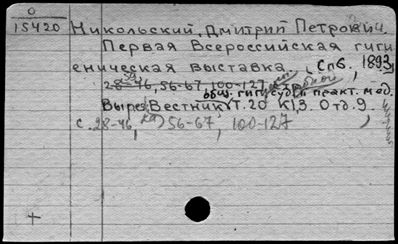 0
15420
Никольский, Дмитрий Петрович.
Первая Всероссийская гиги
еническая выставка. Спб., 1893,
28-46, 56-67, 100-127
общ. гиг. суд. и практ. мед.
Вырез: Вестник, Т.20 К.3. Отд. 9
с. 28-46, 56-67, 100-127
+